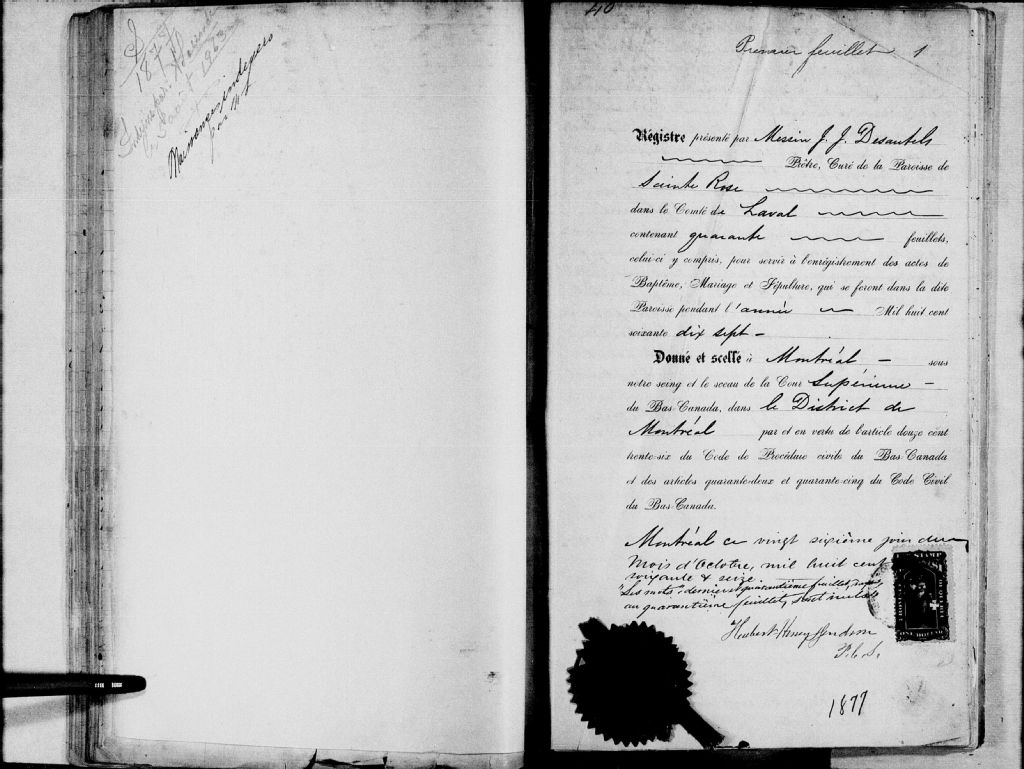 1877
août 1963
Naissances indexées
par
40
Premier feuillet 1
Régistre présenté par Messire J. J. Desautels
Prêtre, Curé de la Paroisse de
Sainte Rose
dans le Comté de Laval
contenant quarante feuillets,
celui-ci y compris, pour servir à l'enrégistrement des actes de
Baptême, Mariage et Sépulture, qui se feront dans la dite
Paroisse pendant l'année Mil huit cent
soixante dix sept –
Donné et scellé à Montréal – sous
notre seing et le sceau de la Cour Supérieure –
du Bas-Canada, dans le District de
Montréal par et en vertu de l'article douze cent
trente-six du Code de Procédure civile du Bas-Canada
et des articles quarante-deux et quarante-cinq du Code Civil
du Bas-Canada.
Montréal ce vingt sixième jour du
Mois d'Octobre, mil huit cent
soixante & seize
Les mots "dernier et quarantième feuillet,
au quarantième feuillet, sont nuls
Hubert Henry
P.C.S.
STAMP
ONE DOLLAR
1877